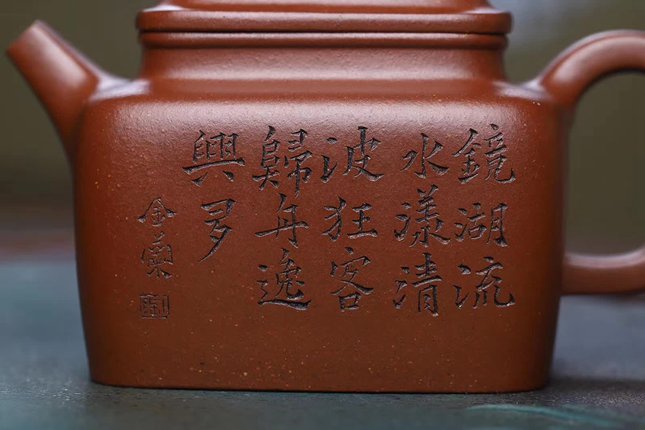 鏡湖流
水漾清
波狂客
歸舟逸
興多
金蘭